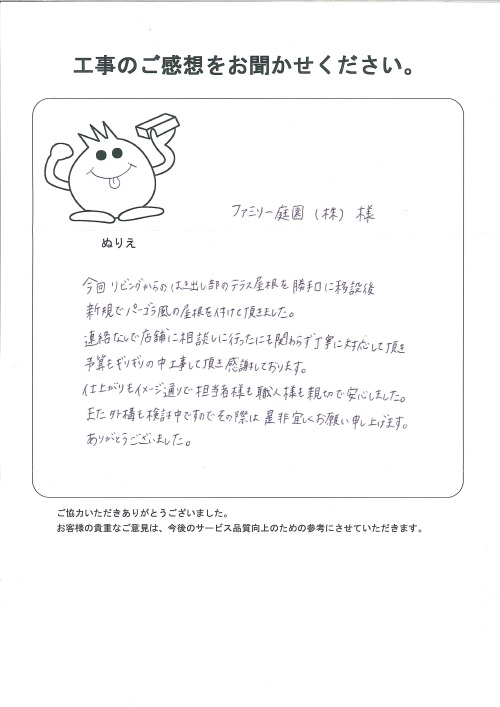 工事のご感想をお聞かせください。
ぬりえ
ファミリー庭園（株）様
今回リビングからのはき出し部のテラス屋根を勝手口に移設後
新規でパーゴラ風の屋根を付けて頂きました。
連絡なしで店舗に相談しに行ったにも関わらず丁寧に対応して頂き
予算もギリギリの中工事して頂き感謝しております。
仕上がりもイメージ通りで担当者様も職人様も親切で安心しました。
また外構も検討中ですのでその際は是非宜しくお願い申し上げます。
ありがとうございました。
ご協力いただきありがとうございました。
お客様の貴重なご意見は、今後のサービス品質向上のための参考にさせていただきます。